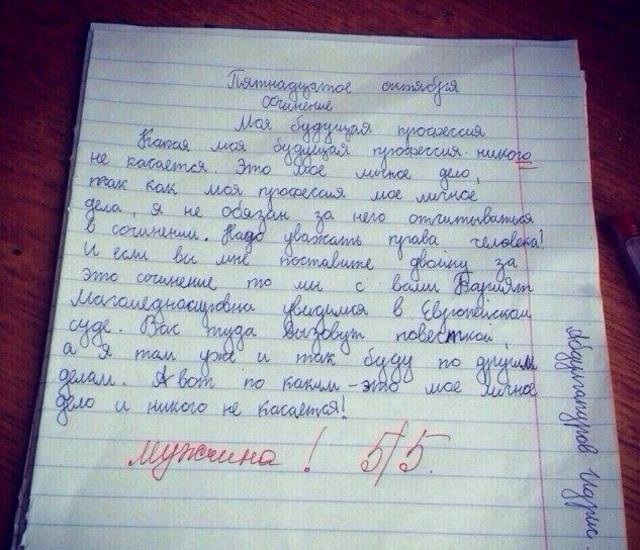 Пятнадцатое октября
сочинение
Моя будущая профессия
Какая моя будущая профессия никого
не касается. Это мое личное дело,
так как моя профессия мое личное
дела, я не обязан за него отчитываться
в сочинении. Надо уважать права человека!
И если вы мне поставите двойку за
это сочинение то мы с вами Варият
Магомеднасировна увидимся в Европейском
суде. Вас туда вызовут повесткой,
а я там уже и так буду по другим
делам. А вот по каким - это мое личное
дело и никого не касается!
мужчина! 5/5.
Абдулгапуров Идрис